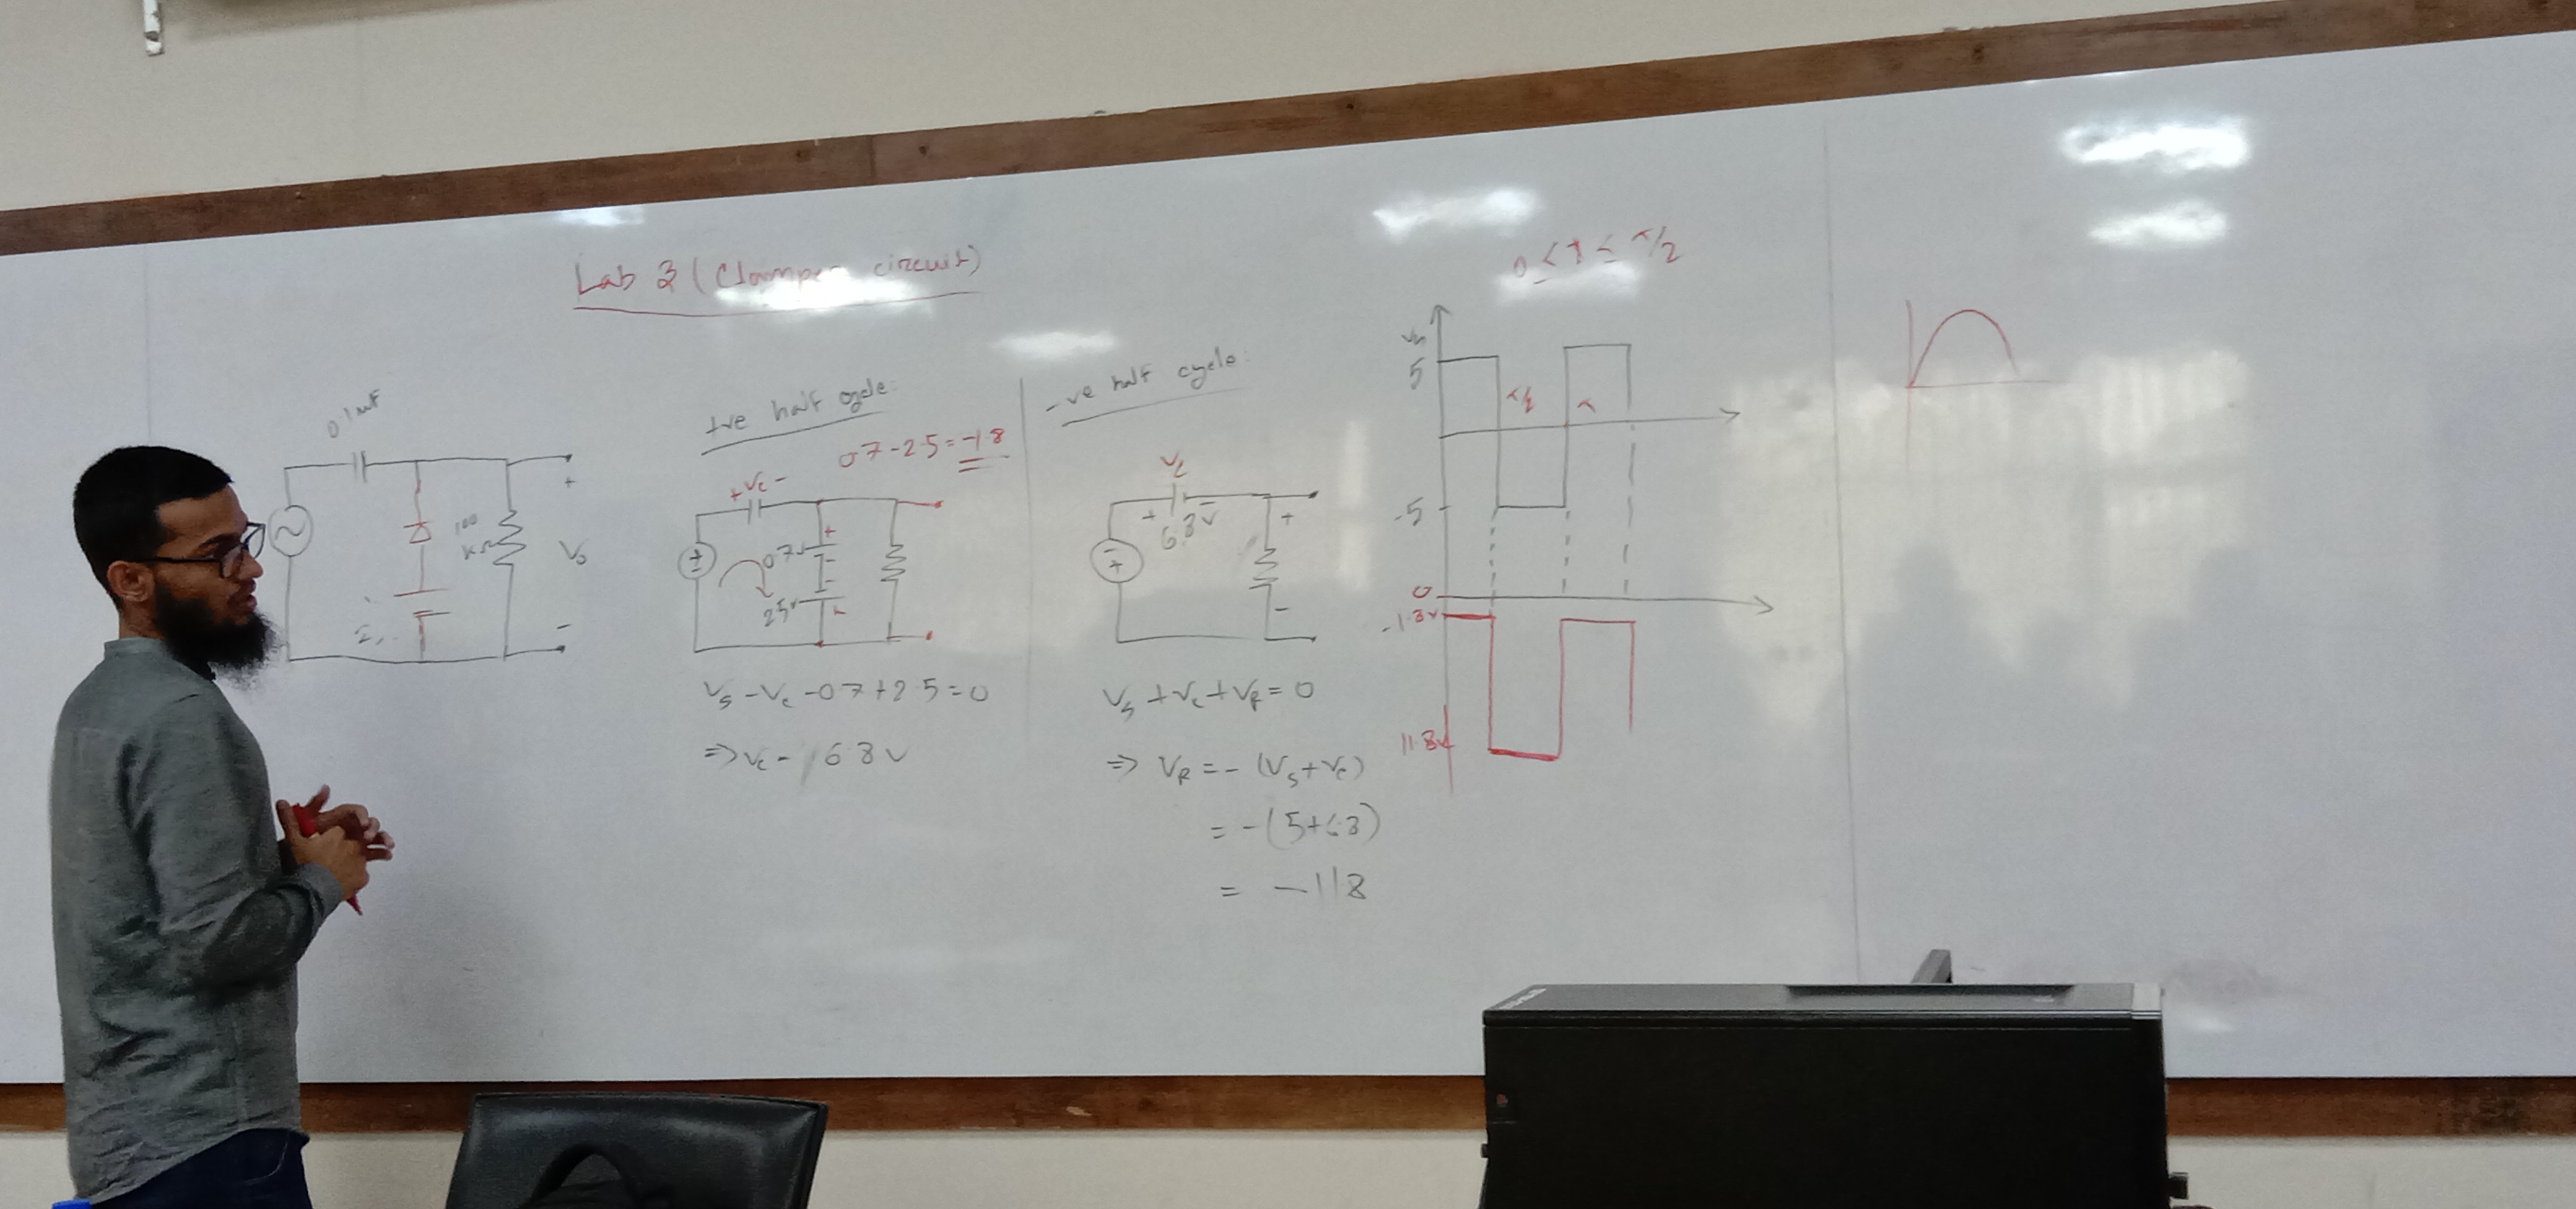 Lab 3 (Clamper circuit)
0.1 uF
100
KΩ
V₀
+
-
+ve half cycle:
0.7-2.5=-1.8
+Vc-
0.7v
2.5v
Vs-Vc-0.7+2.5=0
⇒Vc= 6.8v
-ve half cycle:
Vc
+ 6.8v -
+
-
Vs+Vc+VR=0
⇒ VR=-(Vs+Vc)
= -(5+6.8)
= -11.8
0≤T≤T/2
5
T/2
T
-5
0
-1.8v
11.8v